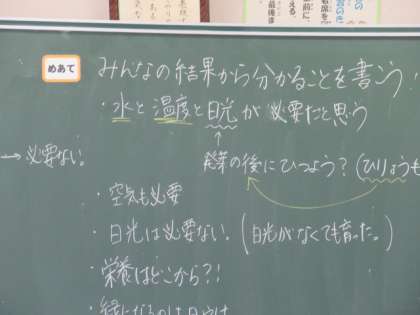 めあて
みんなの結果から分かることを書こう
・水と温度と日光が必要だと思う
→必要ない。
↑
発芽の後にひつよう？（ひりょうも
・空気も必要
・日光は必要ない。（日光がなくても育った。）
・栄養はどこから？！